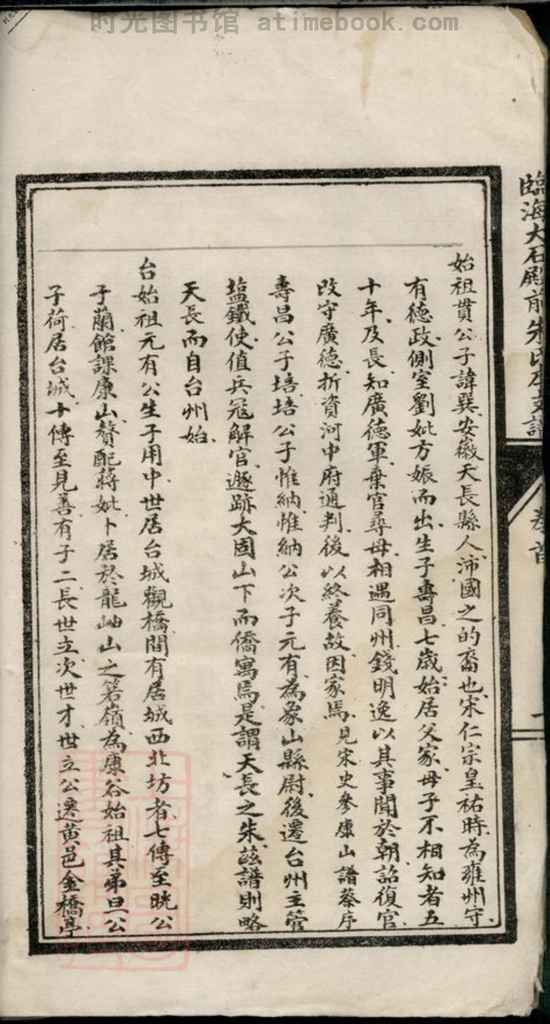 时光图书馆 atimebook.com
始祖貫公子諱巽安徽天長縣人沛國之的裔也宋仁宗皇祐時為雍州守
有德政側室劉妣方娠而出生子壽昌七歲始居父家母子不相知者五
十年及長知廣德軍棄官尋母相遇同州錢明逸以其事聞於朝詔復官
改守廣德折資河中府通判後以終養故因家焉見宋史參康山譜蔡序
壽昌公子培培公子惟納惟納公次子元有為象山縣尉後遷台州主管
塩鐵使值兵寇解官遯跡大固山下而僑寓焉是謂天長之朱茲譜則略
天長而自台州始
台始祖元有公生子用中世居台城觀橋間有居城西北坊者七傳至晓公
子蘭館課康山贅配蔣妣卜居於龍岫山之箬嶺為康谷始祖其弟旦公
子荷居台城十傳至見善有子二長世立次世才世立公遷黄邑金橋亭
臨海大石殿前朱氏本支譜
卷首
一